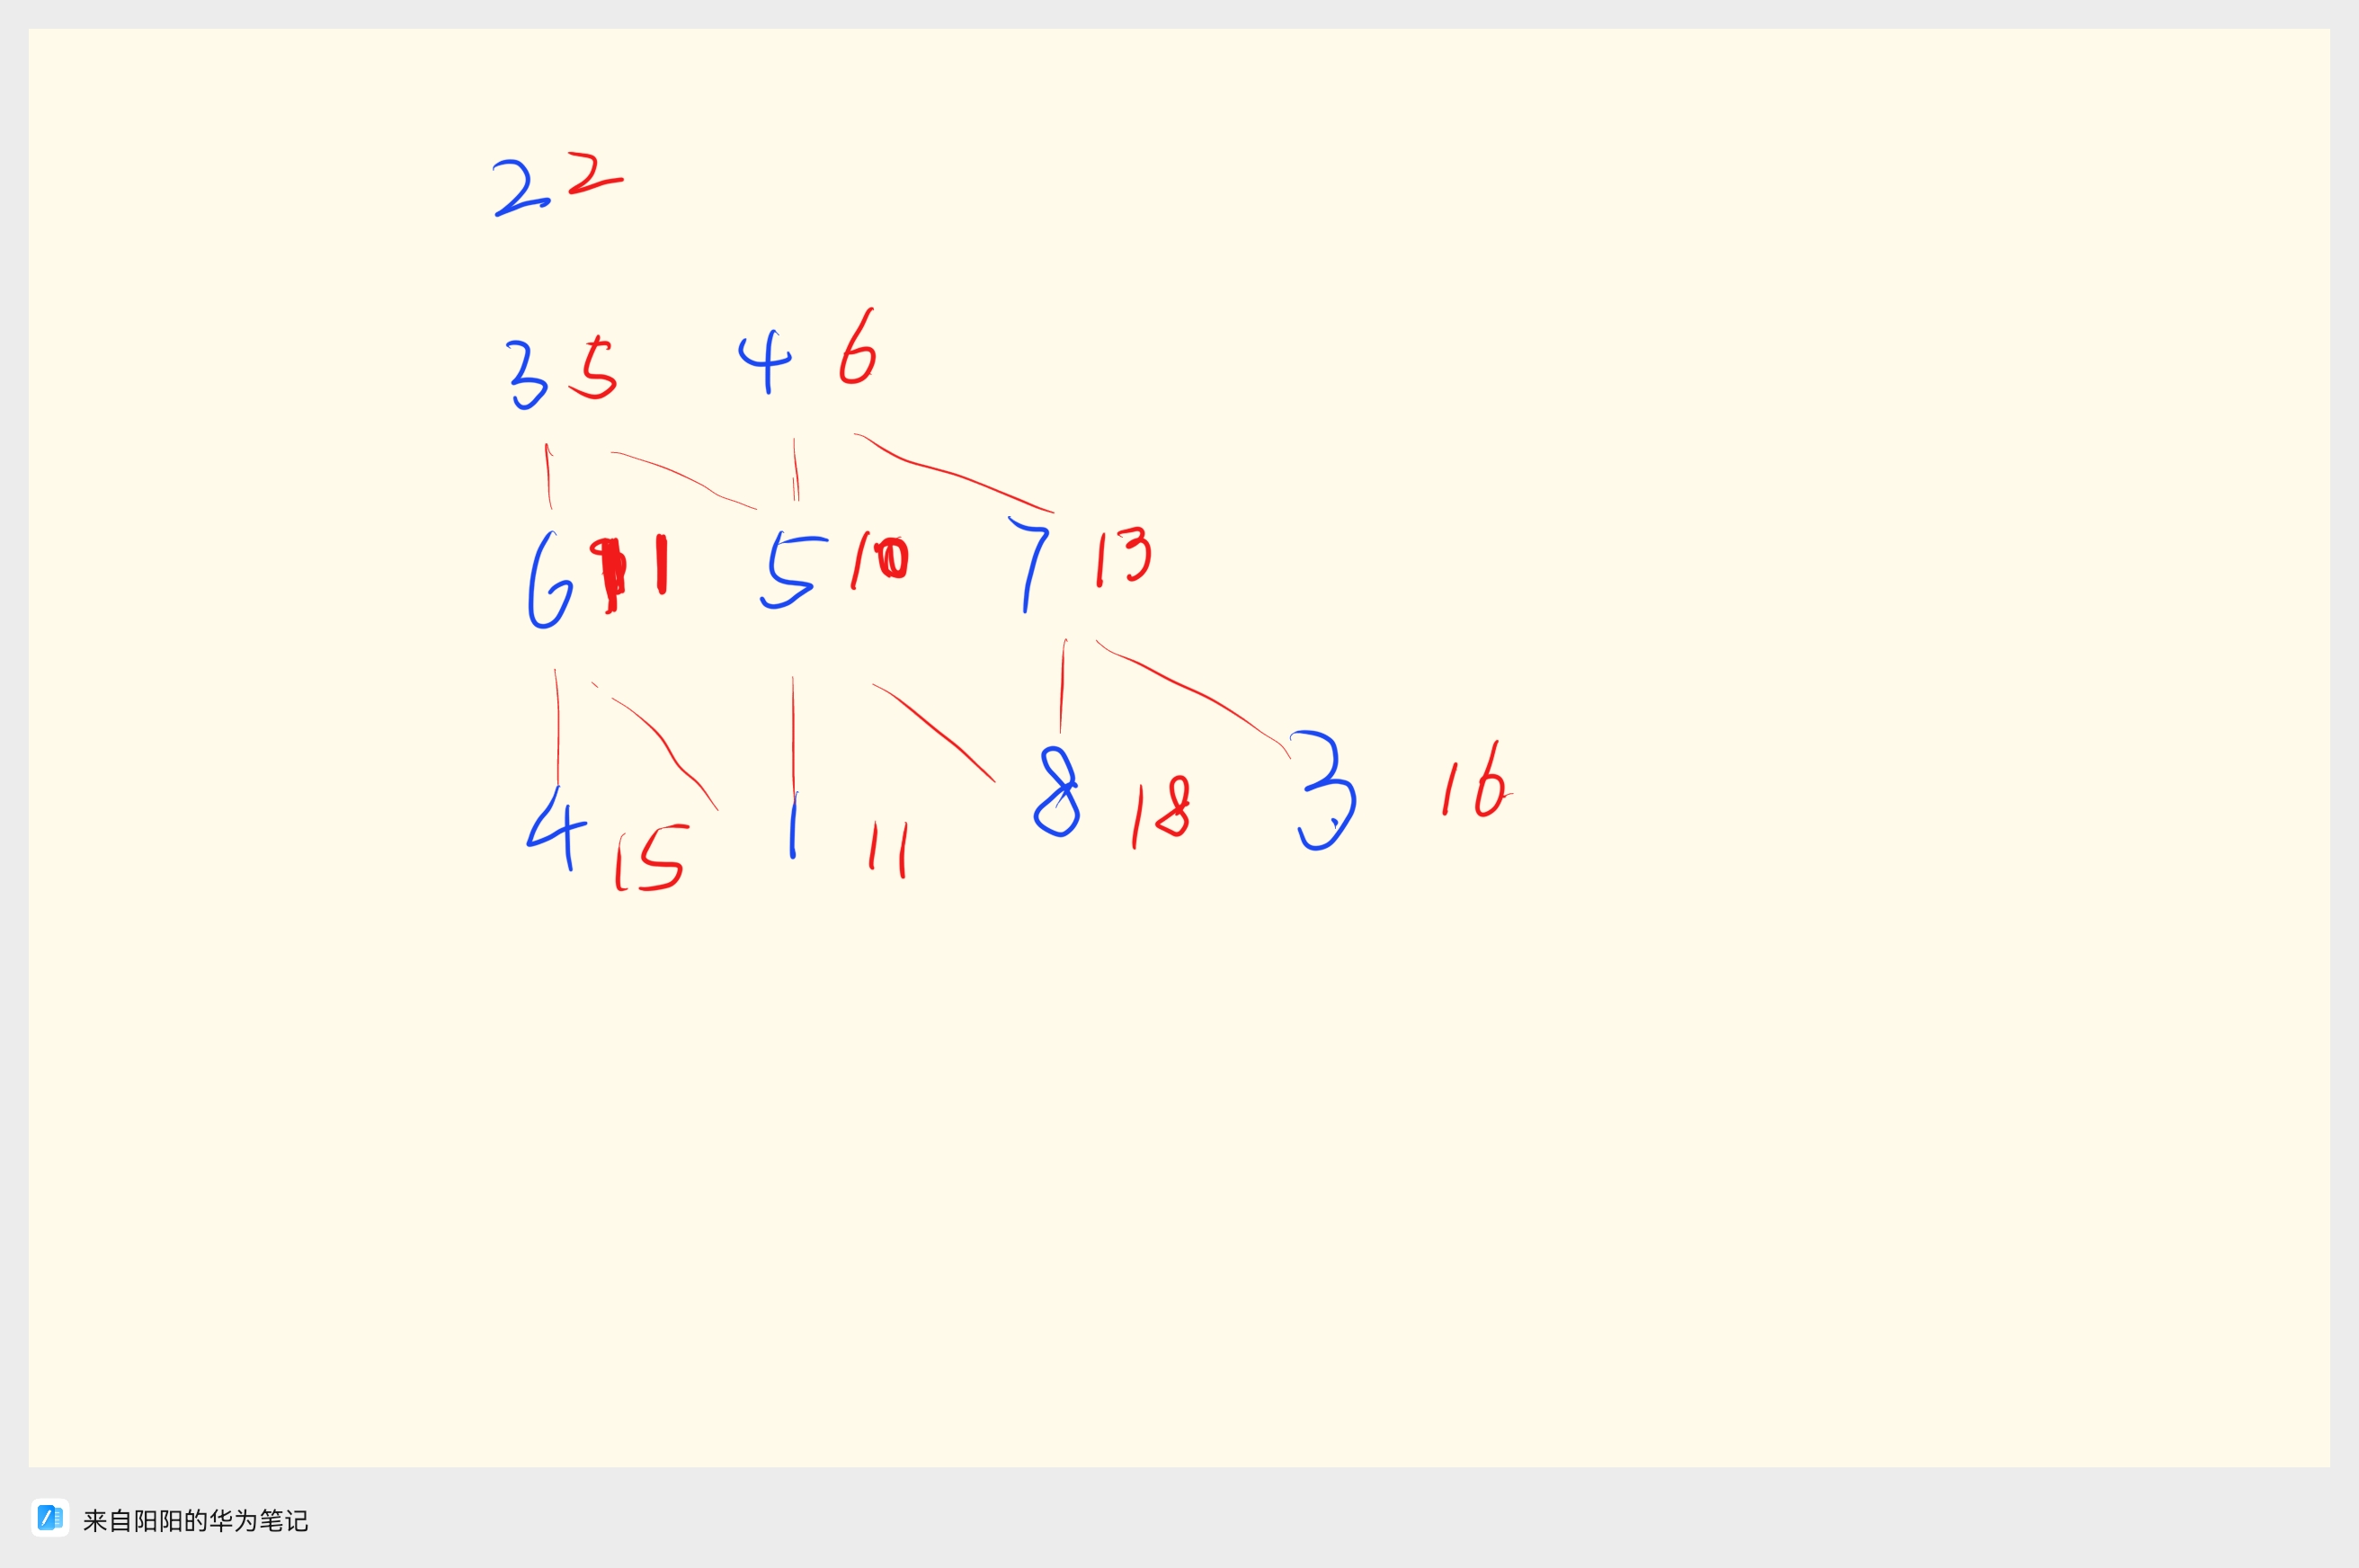 2 2
3 5 4 6
6 11 5 10 7 13
4 15 1 11 8 18 3 16
来自阳阳的华为笔记